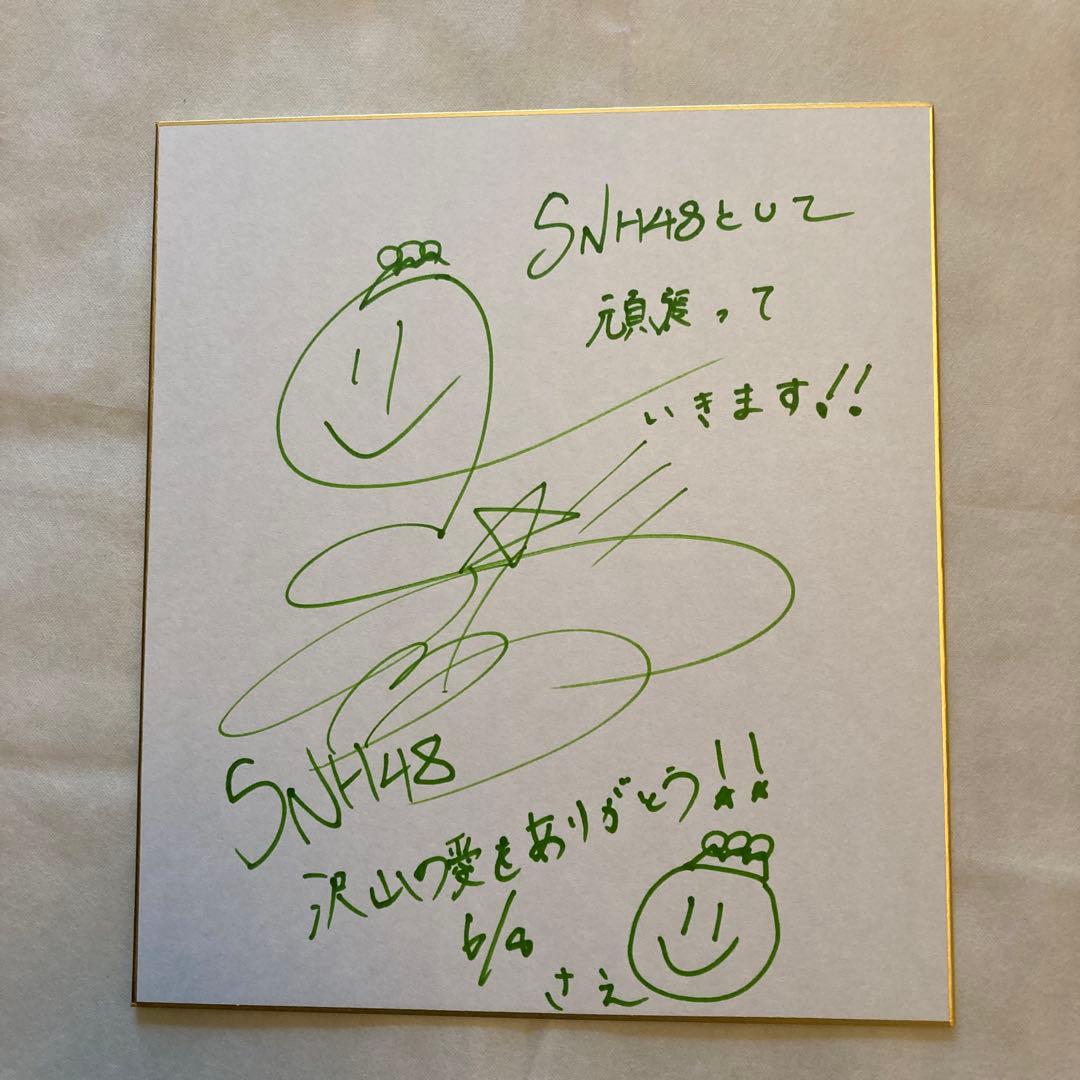 SNH48として
頑張って
いきます!!
SNH48
沢山の愛をありがとう!!
6/8
さえ